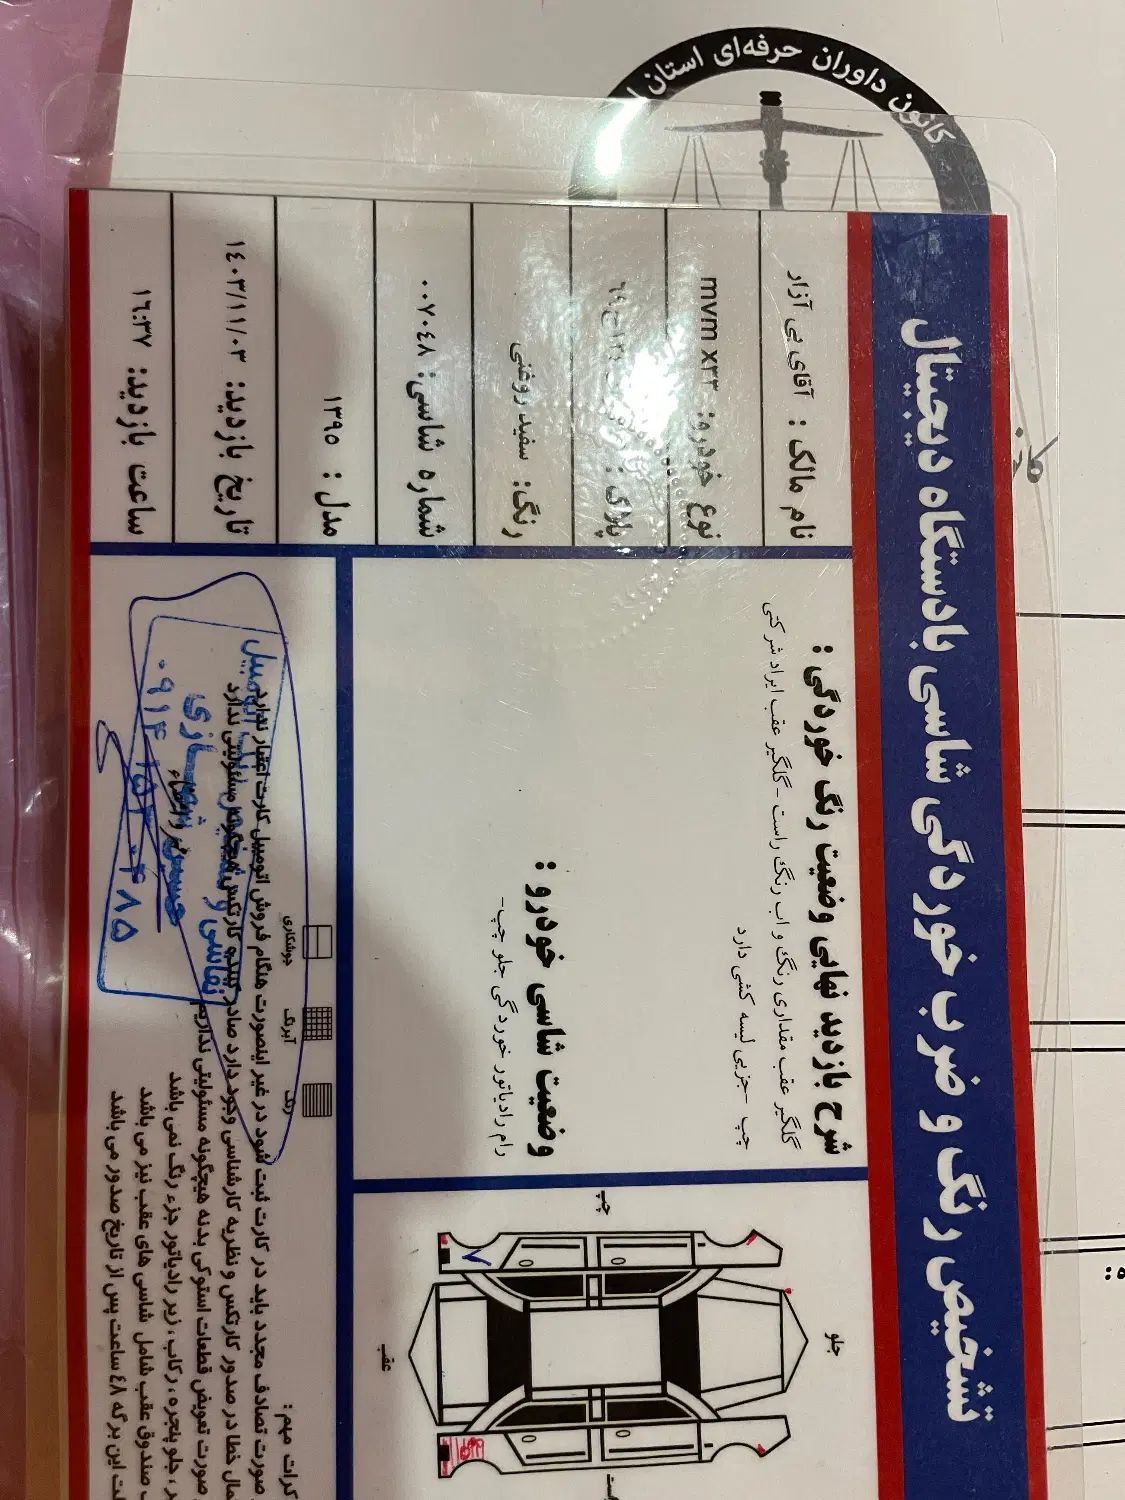 کانون داوران حرفه‌ای استان
تشخیص رنگ و ضرب خوردگی شاسی بادستگاه دیجیتال
نام مالک : آقای بی آزار
نوع خودرو: mvm x۳۳
پلاک :
رنگ: سفید روغنی
شماره شاسی: ۰۰۷۰۴۸
مدل : ۱۳۹۵
تاریخ بازدید: ۱۴۰۳/۱۱/۰۳
ساعت بازدید: ۱۶:۳۷
شرح بازدید نهایی وضعیت رنگ خوردگی :
گلگیر عقب مقداری رنگ و اب رنگ راست - گلگیر عقب ایراد شرکتی
چپ - جزیی لیسه کشی دارد
وضعیت شاسی خودرو :
رام رادیاتور خوردگی جلو چپ-
چپ
جلو
عقب
رنگ
آبرنگ
جوشکاری
کرات مهم :
صورت تصادف مجدد باید در کارت ثبت شود در غیر اینصورت هنگام فروش اتومبیل کارت اعتبار ندارد
مال خطا در صدور کارتکس و نظریه کارشناسی وجود دارد صادر کننده کارتکس هیچگونه مسئولیتی ندارد
صورت تعویض قطعات استوکی بدنه هیچگونه مسئولیتی نداریم
ر ، جلو پنجره ، رکاب ، زیر رادیاتور جزء رنگ نمی باشد
صندوق عقب شامل شاسی های عقب نیز می باشد
این برگه ۴۸ ساعت پس از تاریخ صدور می باشد
مهر و امضاء
نقاشی و